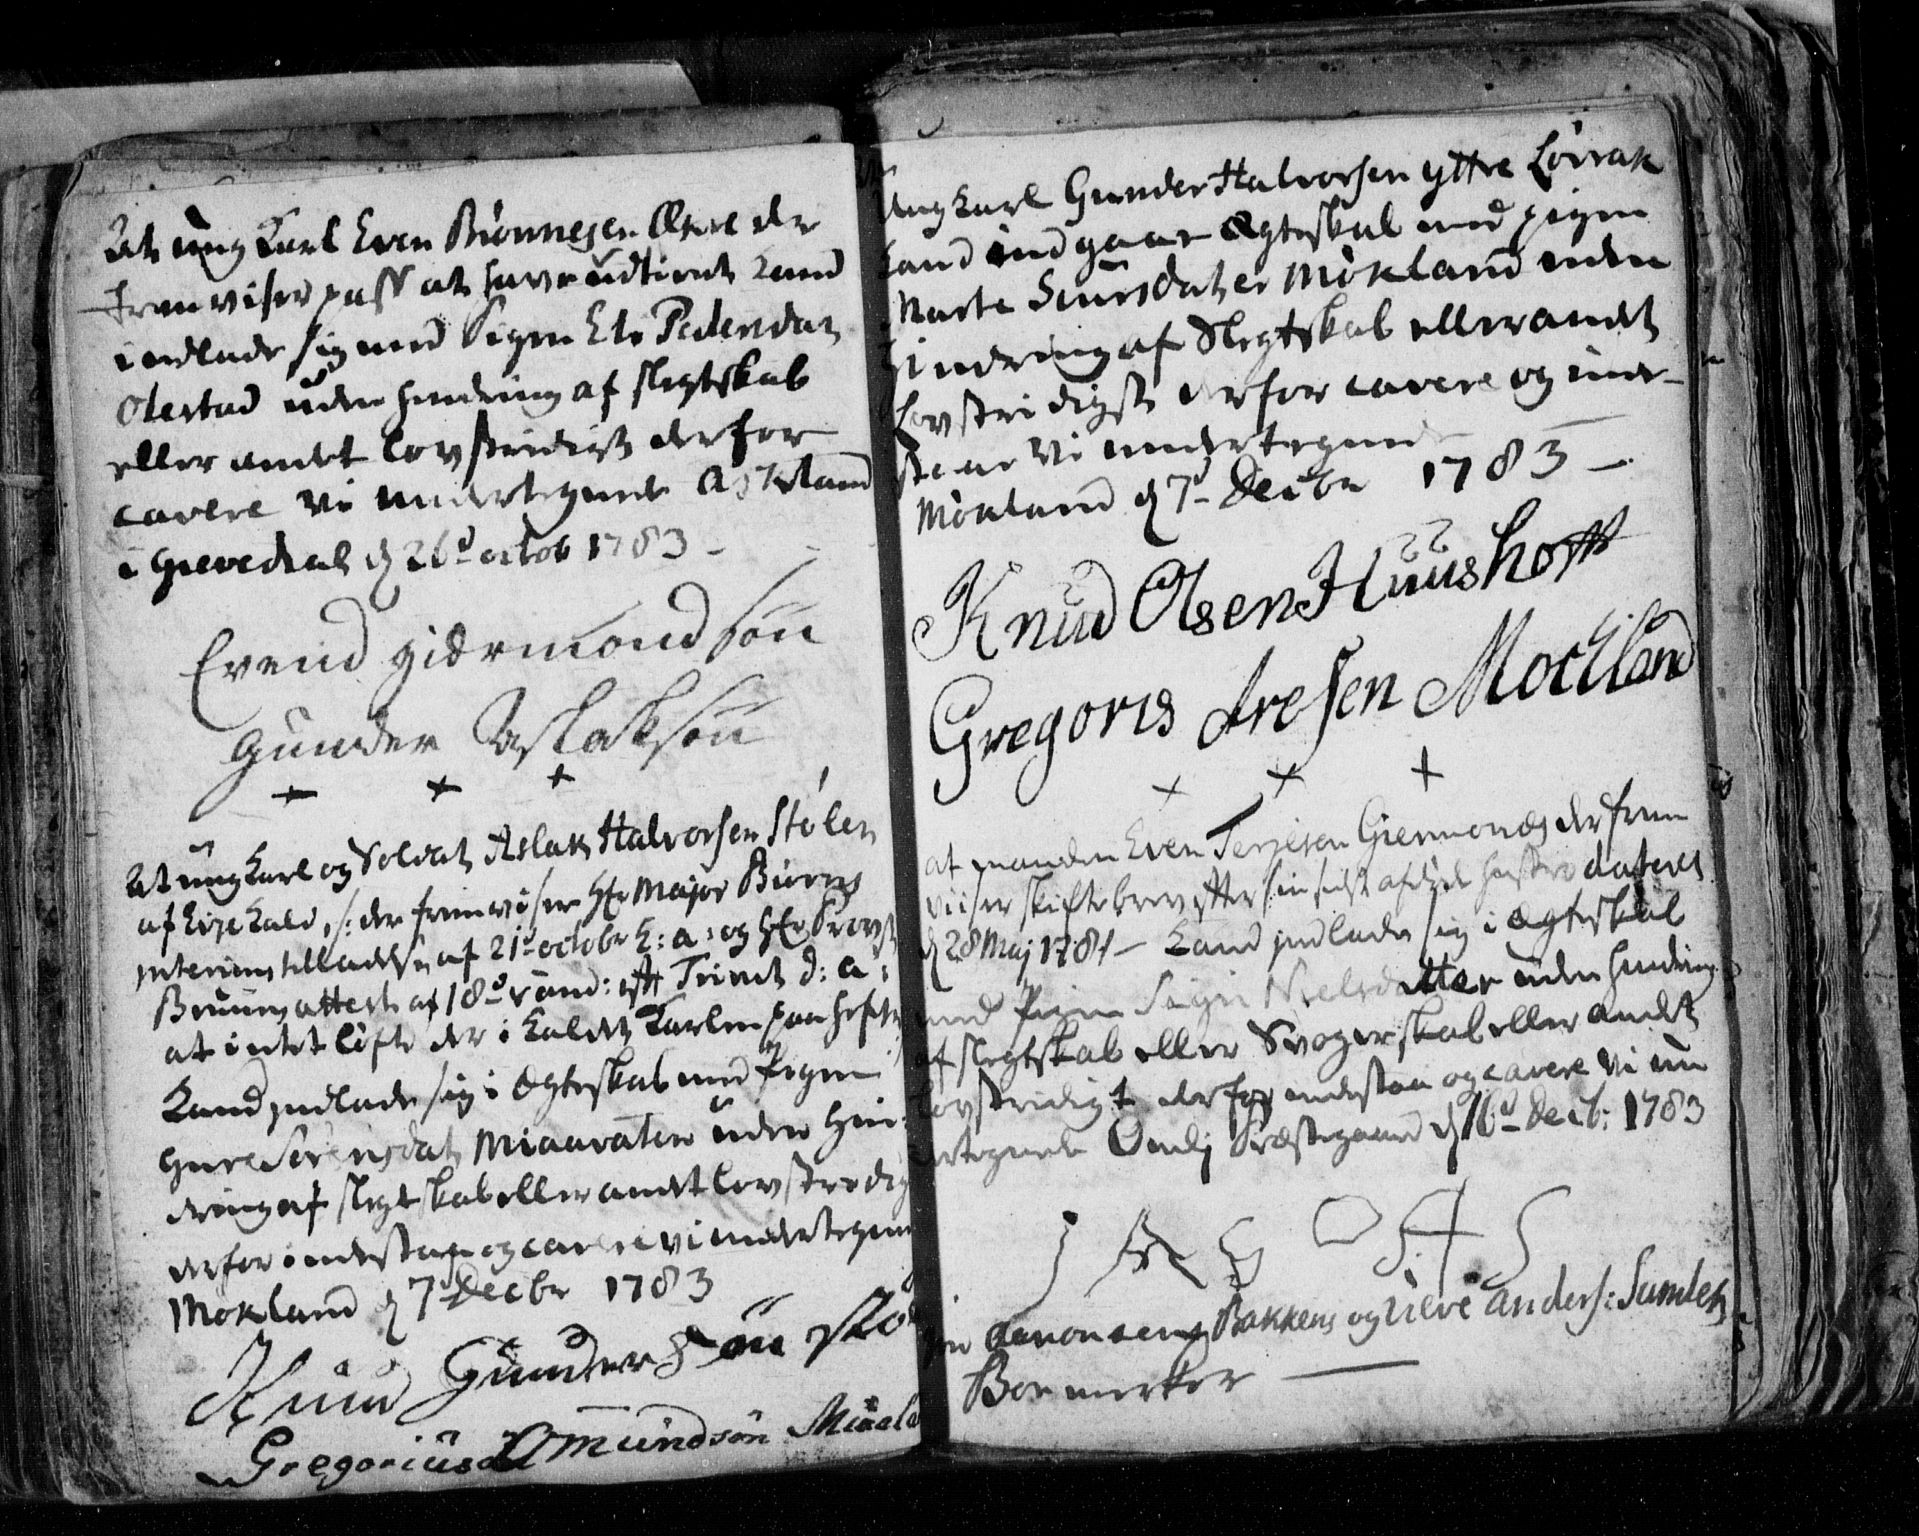 At ung Karl Even Brønnesen der
fremviser pass at have udtient kand
indlade sig med Pigen Eli Pedersdat
Olestad uden hindring af slegtskab
eller andet lovstridigt derfor
cavere vi undertegnede Askeland
i Grevedal d 26d octob 1783 –
Evend giermondsøn
gunder Aslaksøn
+ + +
At ung Karl og Soldat Aslak Halvorsen Stølen
af Kald /: der fremviser Hr Major
interims tilladelse af 21d octobr h: a: og Hr Provst
Bruuns attest af 18d Sønd: eft Trinit d: a:
at intet løfte der i Kaldet Karlen paa hefte
Kand indlade sig i Ægteskab med Pigen
Gure Sørensdat Miaavaten uden hin
dring af slegtskab eller andet lovstridig
derfor indestaae og cavere vi undertegne
Mokland d 7d Decbr 1783
Knud Gundersøn
Gregorius Omundsøn
Ung Karl Gunder Halvorsen yttre Løvrak
Kand indgaae Ægteskab med pigen
Marte Siursdatter Mokland uden
hindring af Slegtskab eller andet
Lovstridigt derfor cavere og inde-
staae Vi undertegnede
Mokland d 7d Decbr 1783 –
Knud Olsen Huushofft
Gregoris Aresen Mockland
+ + +
at manden Even Terjesen Giermonæs der frem
viiser skiftebrev efter sin sidst afdøde hustro dateret
d 28 Maj 1781 – kand indlade sig i Ægteskab
med Pigen Sigri Nielsdatter uden hindring
af slegtskab eller Svogerskab eller andet
lovstridigt derfor indestaa og cavere vi un
dertegnede Omlj Præstegaard d 16d Decb: 1783
Aanonsens Bakken og anders:
Boemerker